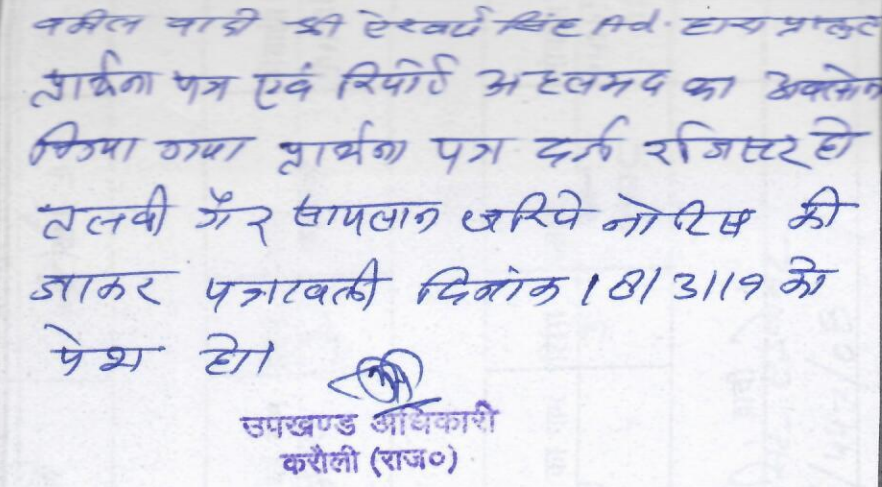 वकील वादी श्री ऐश्वर्य सिंह Ad. द्वारा प्रस्तुत
प्रार्थना पत्र एवं रिपोर्ट अहलमद का अवलोकन
किया गया प्रार्थना पत्र दर्ज रजिस्टर हो
तलवी गैर सायलान जरिये नोटिस की
जाकर पत्रावली दिनांक 18/3/19 को
पेश हो।
उपखण्ड अधिकारी
करौली (राज०)